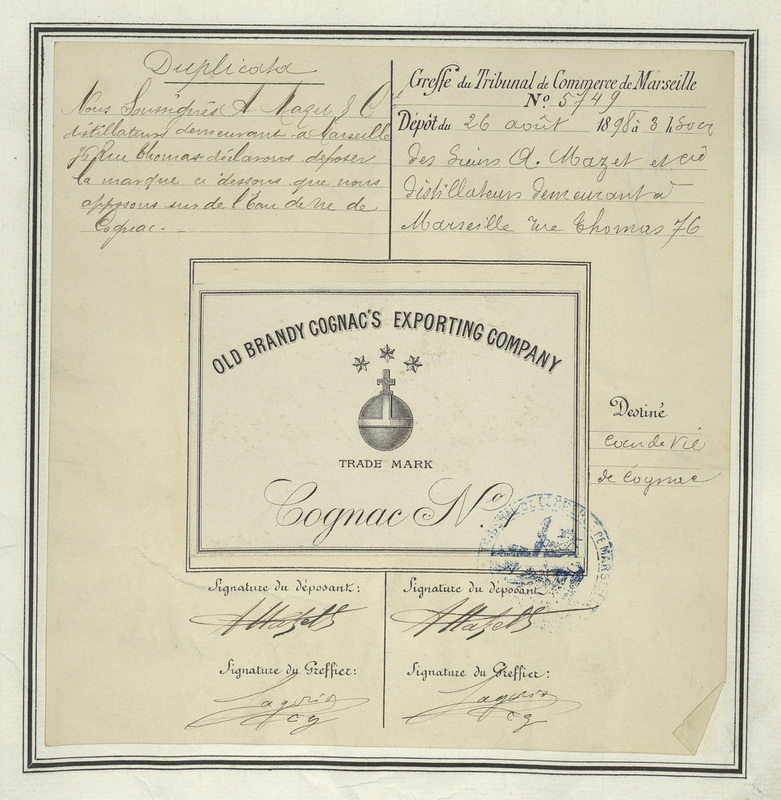 Duplicata
Nous Soussignés A. Mazet & Cie
distillateurs demeurant à Marseille
76 Rue Thomas déclarons déposer
la marque ci dessous que nous
apposons sur de l'Eau de Vie de
Cognac. -
Greffe du Tribunal de Commerce de Marseille
No 5749
Dépôt du 26 août 1898 à 3 h
des Srs A. Mazet et cie
distillateurs demeurant à
Marseille rue Thomas 76
OLD BRANDY COGNAC'S EXPORTING COMPANY
TRADE MARK
Cognac No 1
Destiné
eau de Vie
de Cognac
TRIBUNAL DE COMMERCE DE MARSEILLE
Signature du déposant:
A Mazet
Signature du déposant
A Mazet
Signature du Greffier:
Signature du Greffier: